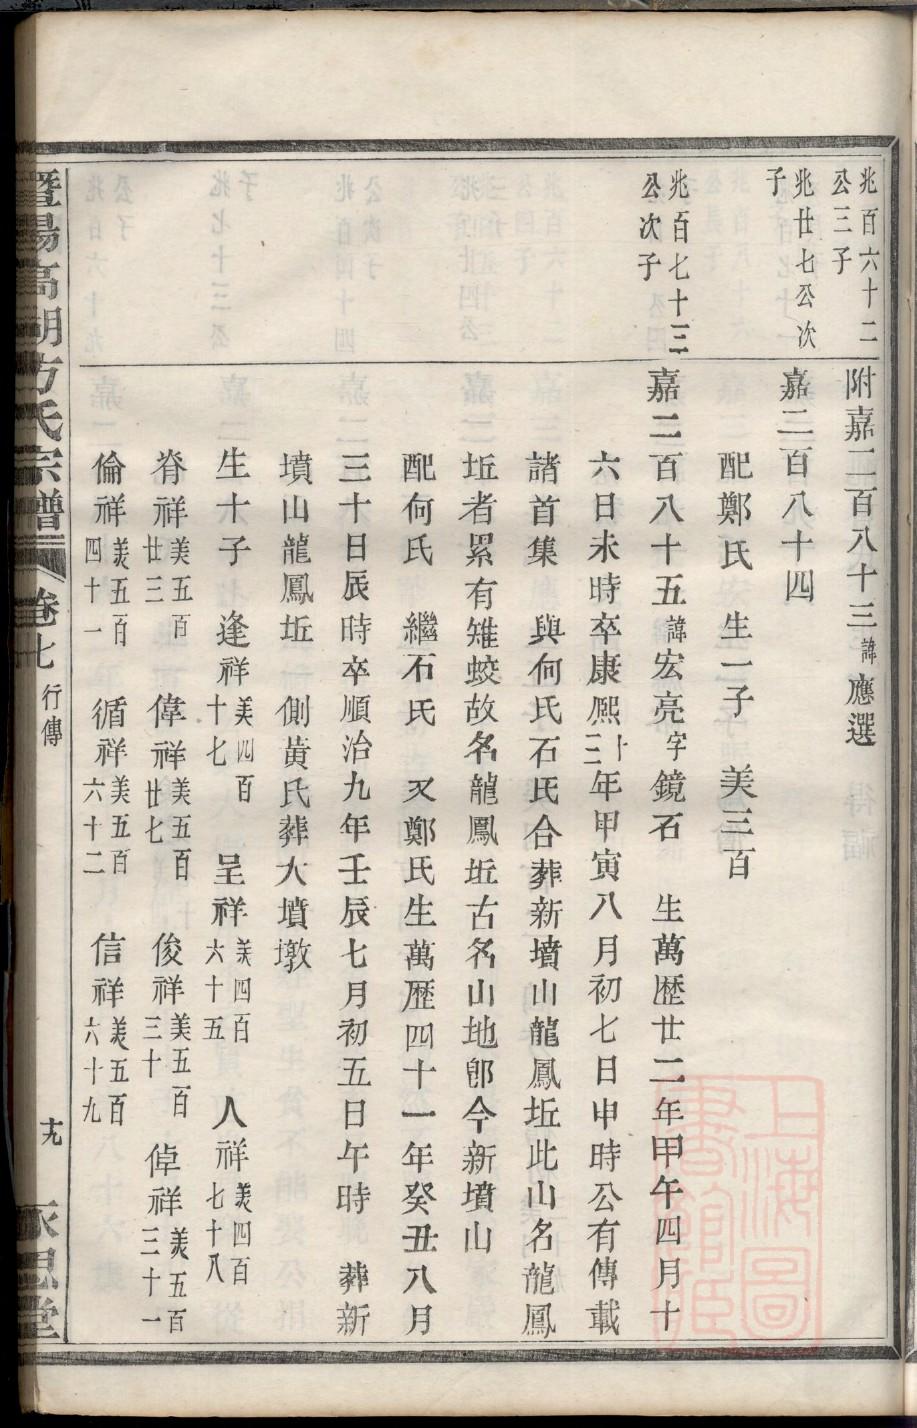 兆百六十二
公三子
附嘉二百八十三諱應選
兆廿七公次
子
嘉二百八十四
配鄭氏 生一子 美三百
兆百七十三
公次子
嘉二百八十五諱宏亮字鏡石 生萬歷廿二年甲午四月十
六日未時卒康熈十三年甲寅八月初七日申時公有傳載
諸首集 與何氏石氏合葬新墳山龍鳳坵此山名龍鳳
坵者累有雉蛟故名龍鳳坵古名山地卽今新墳山
配何氏 繼石氏 又鄭氏生萬歷四十一年癸丑八月
三十日辰時卒順治九年壬辰七月初五日午時 葬新
墳山龍鳳坵側黃氏葬大墳墩
生十子 逢祥美四百十七 呈祥美四百六十五 人祥美四百七十八
脊祥美五百廿三 偉祥美五百廿七 俊祥美五百三十 倬祥美五百三十一
倫祥美五百四十一 循祥美五百六十二 信祥美五百六十九
暨陽高湖方氏宗譜 卷七 行傳 十九 永思堂
上海圖書館藏